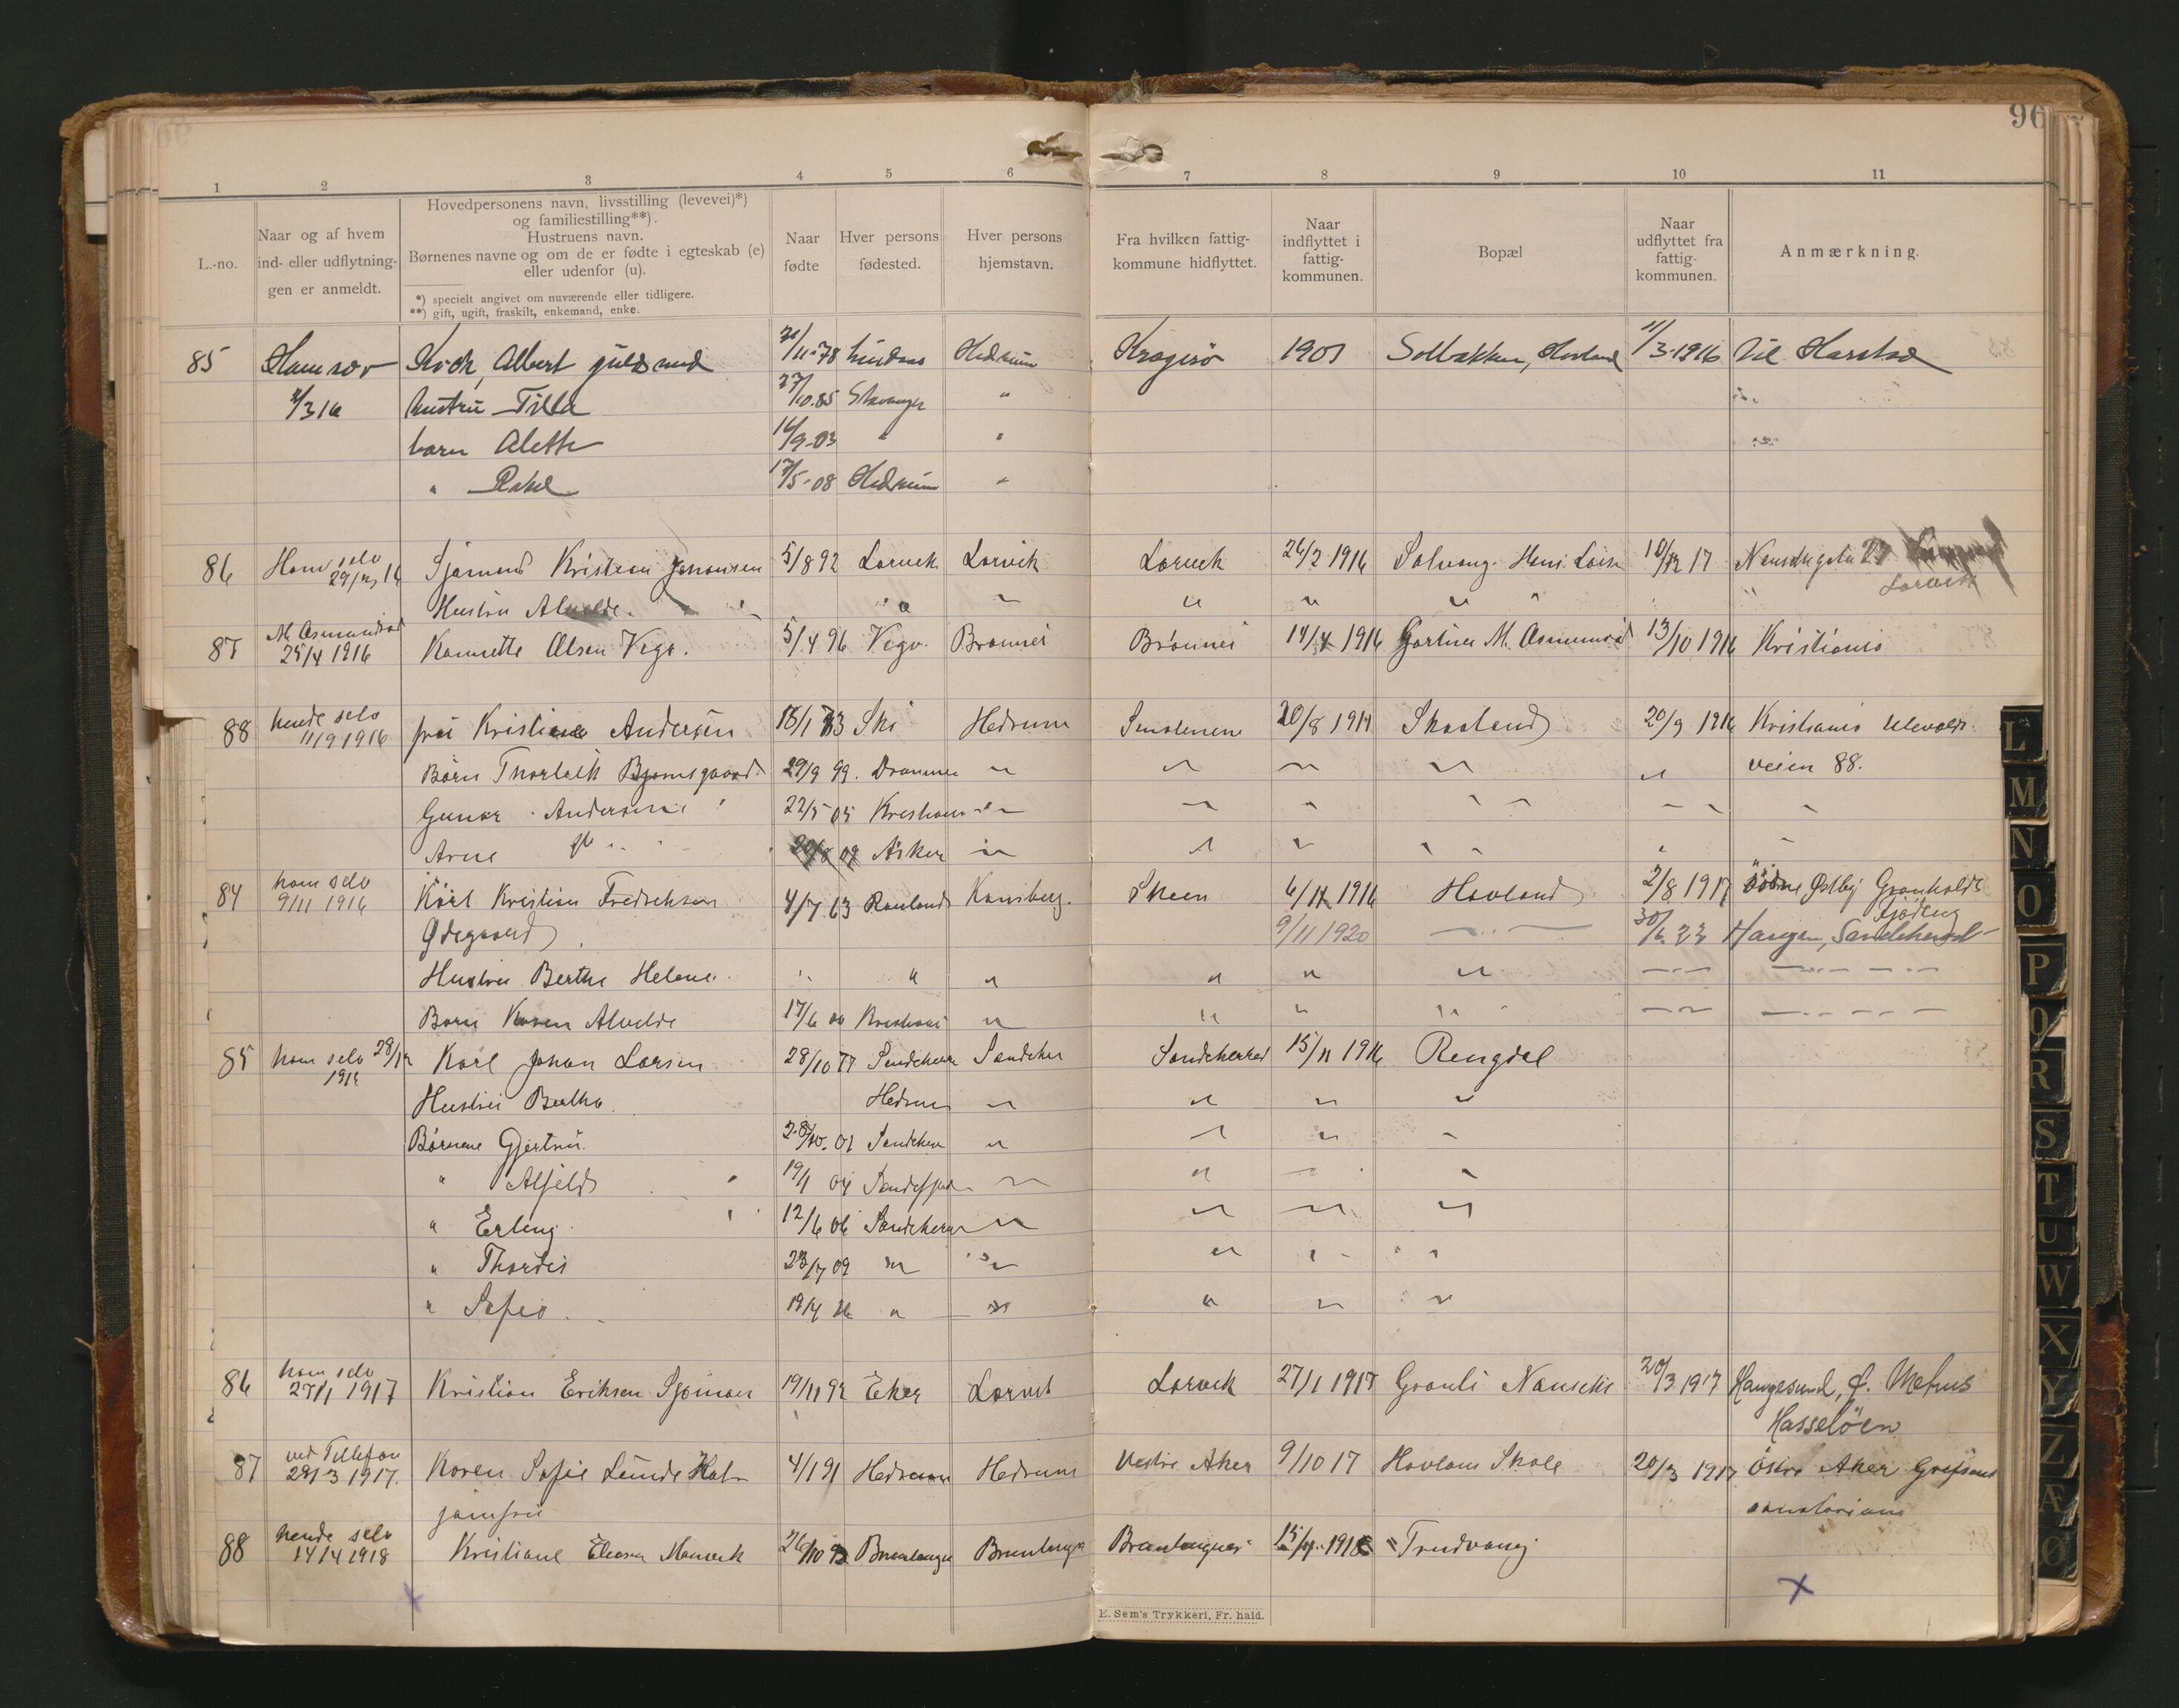 96
1 2 3 4 5 6 7 8 9 10 11
L.-no.
Naar og af hvem
ind- eller udflytnin-
gen er anmeldt.
Hovedpersonens navn, livsstilling (levevei)*)
og familiestilling**).
Hustruens navn.
Børnenes navne og om de er fødte i egteskab (e)
eller udenfor (u).
*) specielt angivet om nuværende eller tidligere.
**) gift, ugift, fraskilt, enkemand, enke.
Naar
fødte
Hver persons
fødested.
Hver persons
hjemstavn.
Fra hvilken fattig-
kommune hidflyttet.
Naar
indflyttet i
fattig-
kommunen.
Bopæl
Naar
udflyttet fra
fattig-
kommunen.
Anmærkning.
85 Albert 21/11-78 Hedrum Kragerø 1901 Solbakken, Hovland 11/3-1916 Til Harstad
/3 16 hustru Tilla 27/10.85 Stavanger "
barn Alette 14/9-03 " "
" Rakel 17/5-08 Hedrum "
86 Ham selv Sjømand Kristian Johansen 5/8 92 Larvik Larvik Larvik 26/2 1916 Solvang 10/12 17
29/2 16 Larvik
Hustru " " " " "
87 M. Asmundrød
25/4 1916 Olsen Vega. 5/4 96 Vega. Brønnei Brønnei 14/4 1916 Gartner M. Asmundrød 13/10 1916 Kristiania
88 hende selv fru Kristiane Andersen 18/1 Ski Hedrum Smalenene 20/8 1911 Skaaland 20/9 1916 Kristiania Ulevolds
11/9 1916
Børn Thorleik Bjørnsgaard 29/9 99. Drammen " " " " " veien 88.
Gunar Andersen 22/5 05 Kristiania " " " " " "
Arne do 09 Asker " " " " " "
84 ham selv Karl Kristian Fredriksen 4/7 63 Rauland Kongsberg. Skeen 6/11 1916 Hovland 2/8 1917 Østby Granholdt
9/11 1916 Fjødeng
Ødegaard 9/11 1920 " 30/6 23 Haugen, Sandeherred
Hustru Berthe Helene " " " " " "
Barn Karen Alvilde 17/6 00 Kristiania " " " "
85 ham selv 28/12 Karl Johan Larsen 28/10 77 Sandeherre Sandeher Sandeherred 15/11 1916 Rengdal
191
Hustru Bertha Hedrum " " " "
Børnene Gjertrui. 28/10. 01 Sandeher " " " "
" Alfild 19/1 04 Sandefjord " " "
" Erling 12/6 06 Sandeherre " " " "
" Thordis 23/7 09 " " " " "
" Sofie 19/4 " " " " "
86 ham selv Kristian Eriksen Sjømann 19/11 92 Eker Larvik Larvik 27/1 1917 Granli Nanset 20/3 1917 Haugesund,
27/1 1917 Hasseløen
87 ved Tellefon Karen Sofie Lunde 4/1 91 Hedrum Hedrum Vestre Aker 9/10 17 Hovland Skole 20/3 1917 Østre Aker Grefsens
28/3 1917. jomfru sanatorium
88 hende selv Kristiane 26/10 Brunlanges Brunlanges Brunlangnes 15/4. 1918 Trudvang
14/4 1918
x x
E. Sem's Trykkeri, Fr. hald.
L
M
N
O
P
Q
R
S
T
U
W
X
Y
Z
Æ
Ø